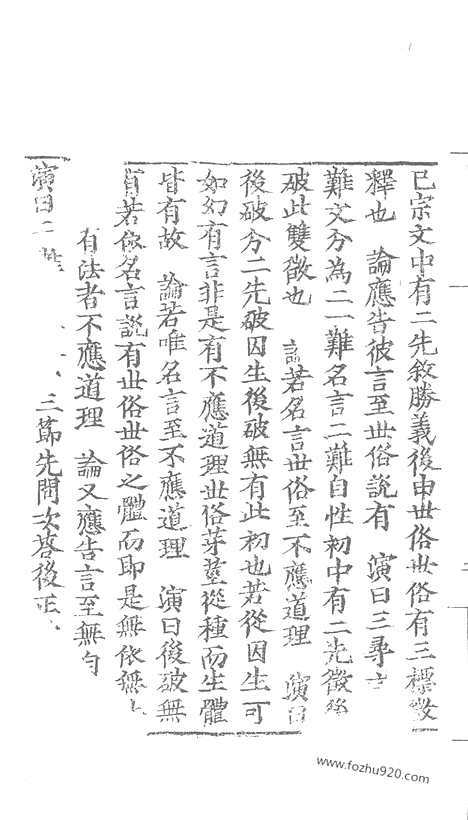 已宗文中有二先敘勝義後申世俗世俗有三標徵
釋也　論應告彼言至世俗說有　演曰三尋
難文分為二一難名言二難自性初中有二先徵後
破此雙徵也　論若名言世俗至不應道理　演曰
後破分二先破因生後破無有此初也若從因生可
如幻有言非是有不應道理世俗芽莖從種而生體
皆有故　論若唯名言至不應道理　演曰後破無
有若依名言說有世俗世俗之體而即是無依無
有法者不應道理　論又應告言至無
演曰二　三節先問次荅後正
www.fozhu920.com